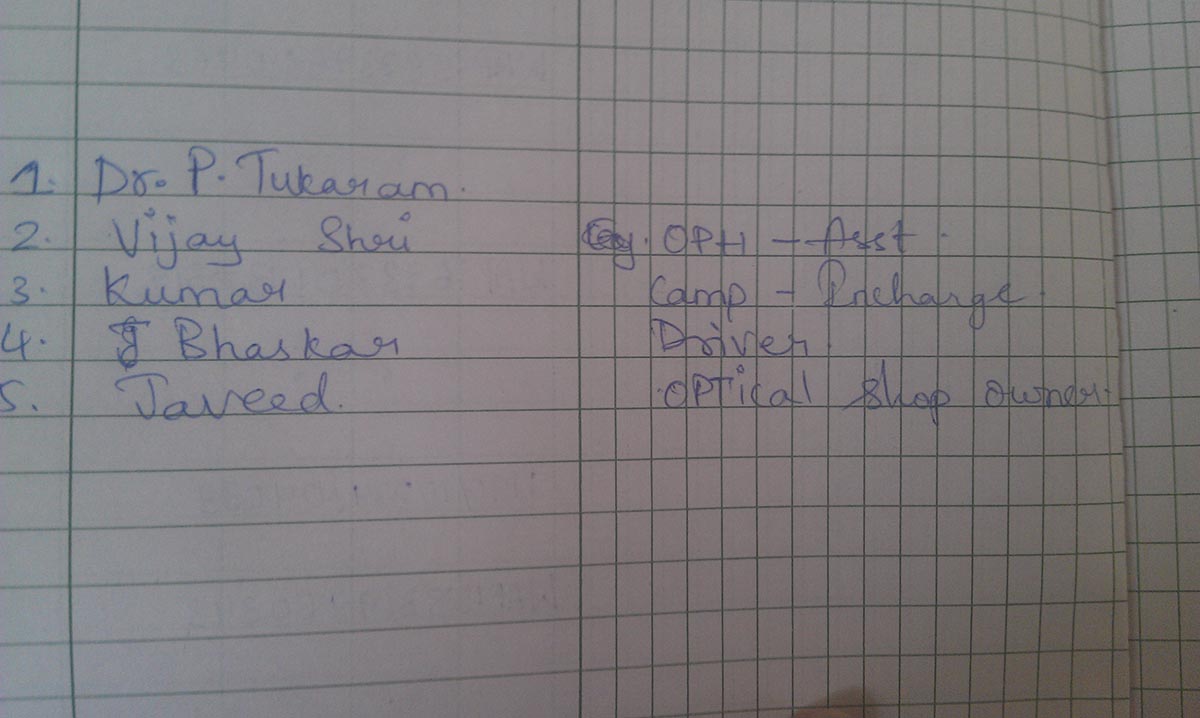 1. Dr. P. Tukaram.
2. Vijay Shri OPH - Asst.
3. Kumar Camp - Incharge.
4. Bhaskar Driver
5. Javeed. OPTical Shop owner.